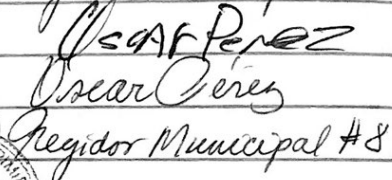 Oscar Pérez
Oscar Pérez
Regidor Municipal #8